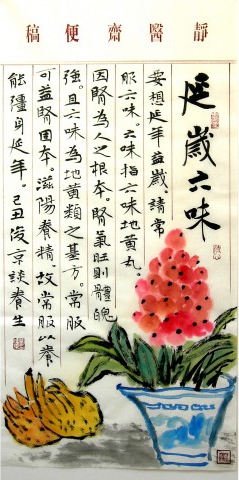 靜醫齋便稿
延歲六味
要想延年益歲請常
服六味。六味指六地黃丸。
因腎為人之根本。腎氣旺則體魄
強。且六味為地黃類之基方。常服
可益腎固本。滋陽養精,故常服以養
能彊身延年。己丑浚京談養生